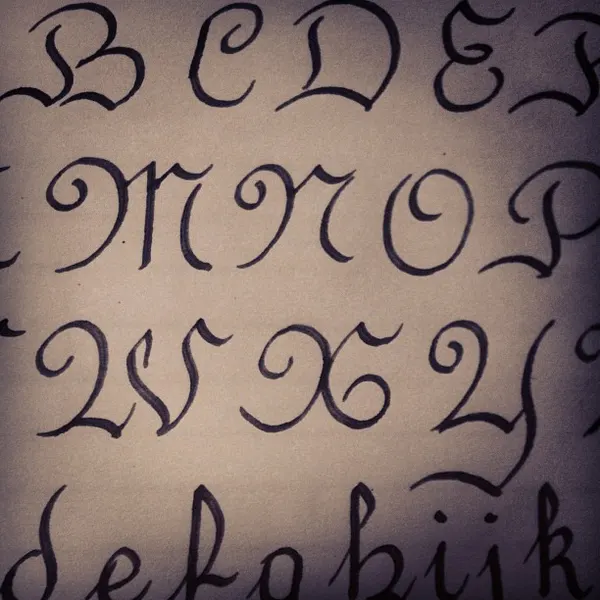 B C D E F
M N O P
W X Y
d e f g h i j k